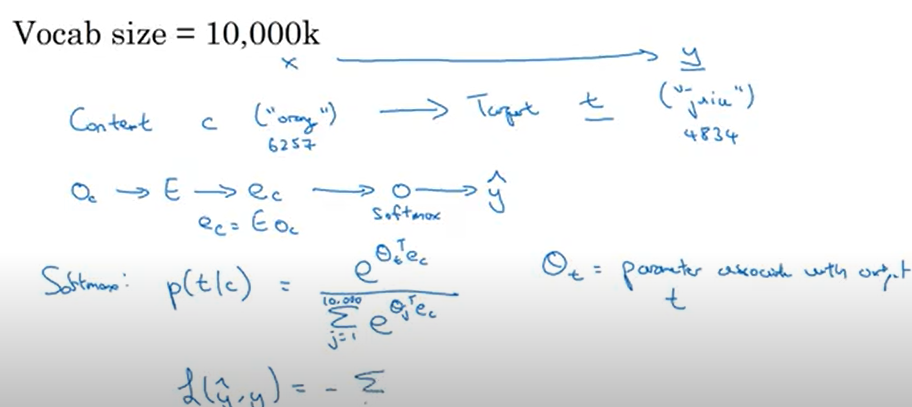 Vocab size = 10,000k
x → y
Context c ("orange") → Target t ("juice")
6257 4834
O_c → E → e_c → o → ŷ
e_c = E O_c softmax
Softmax: p(t|c) = e^{θ_t^T e_c} / Σ_{j=1}^{10,000} e^{θ_j^T e_c} θ_t = parameter associated with output t
L(ŷ, y) = - Σ